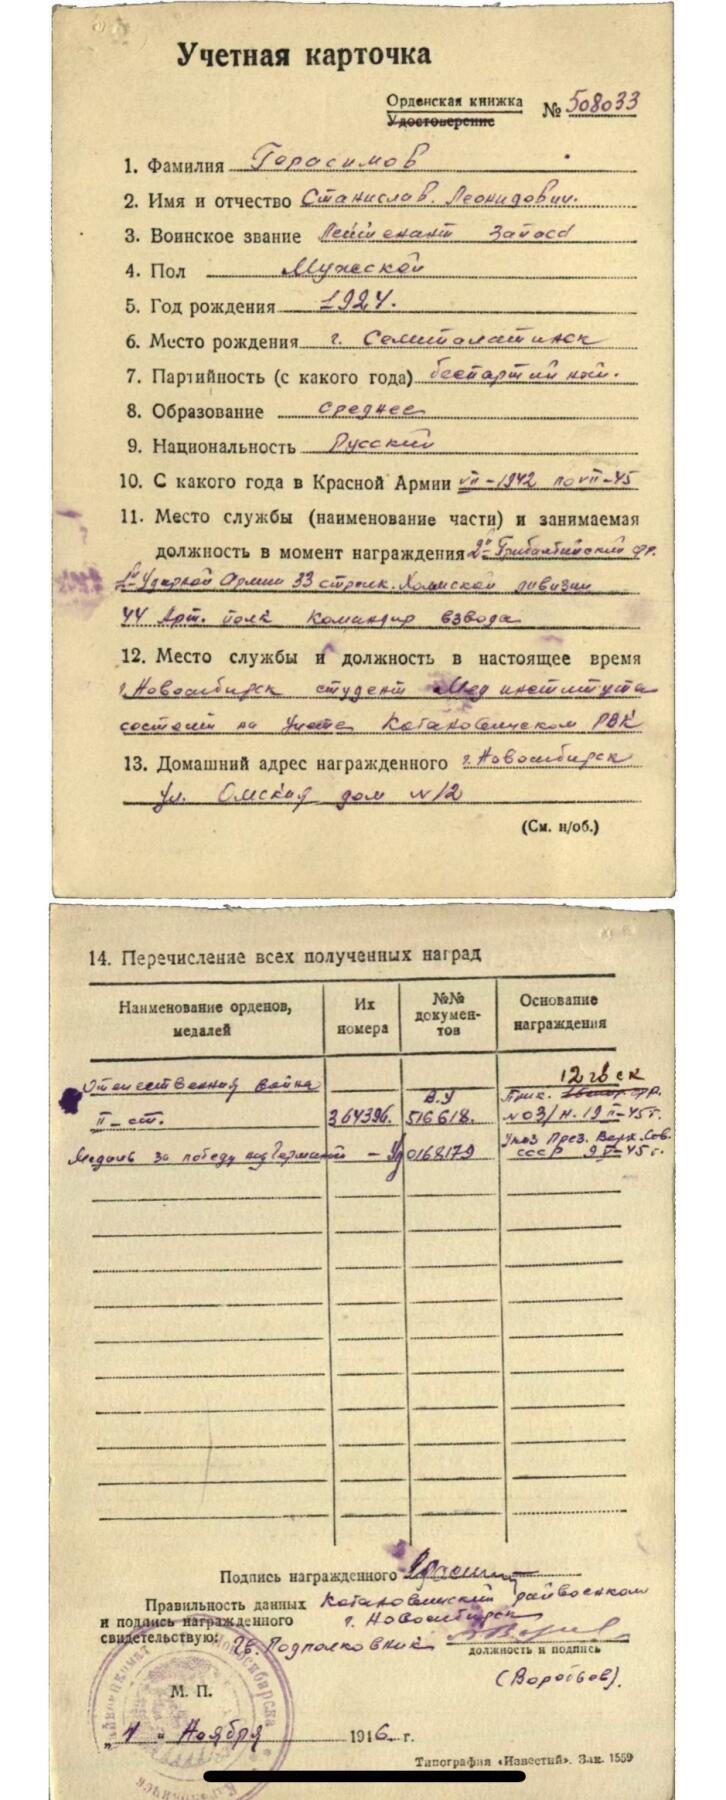 Учетная карточка
Орденская книжка
Удостоверение № 508033
1. Фамилия Герасимов
2. Имя и отчество Станислав. Леонидович.
3. Воинское звание Лейтенант запаса
4. Пол Мужской
5. Год рождения 1924.
6. Место рождения г. Семипалатинск
7. Партийность (с какого года) беспартийный.
8. Образование среднее
9. Национальность Русский
10. С какого года в Красной Армии VII-1942 по VII-45
11. Место службы (наименование части) и занимаемая
должность в момент награждения 2й Прибалтийский фр.
1й Ударной Армии 33 стрелк. Холмской дивизии
44 Арт. полк Командир взвода
12. Место службы и должность в настоящее время
г. Новосибирск студент Мед института
состоит на учете Кагановическом РВК
13. Домашний адрес награжденного г. Новосибирск
ул. Омская дом №12
(См. н/об.)
14. Перечисление всех полученных наград
Наименование орденов, медалей
Их номера
№№ докумен-тов
Основание награждения
12 гв ск
Отечественная война В.У Прик. фр.
II-ст. 364396. 516618. №03/н. 19 II-45 г.
Медаль за победу над Германией - Уд 0168179 Указ През. Верх. Сов.
СССР 9 V-45 г.
Подпись награжденного
Правильность данных Кагановический райвоенком
и подпись награжденного г. Новосибирск
свидетельствую: Гв. Подполковник
должность и подпись
(Воробьев).
М. П.
"4" Ноября 1946 г.
Типография «Известий». Зак. 1559